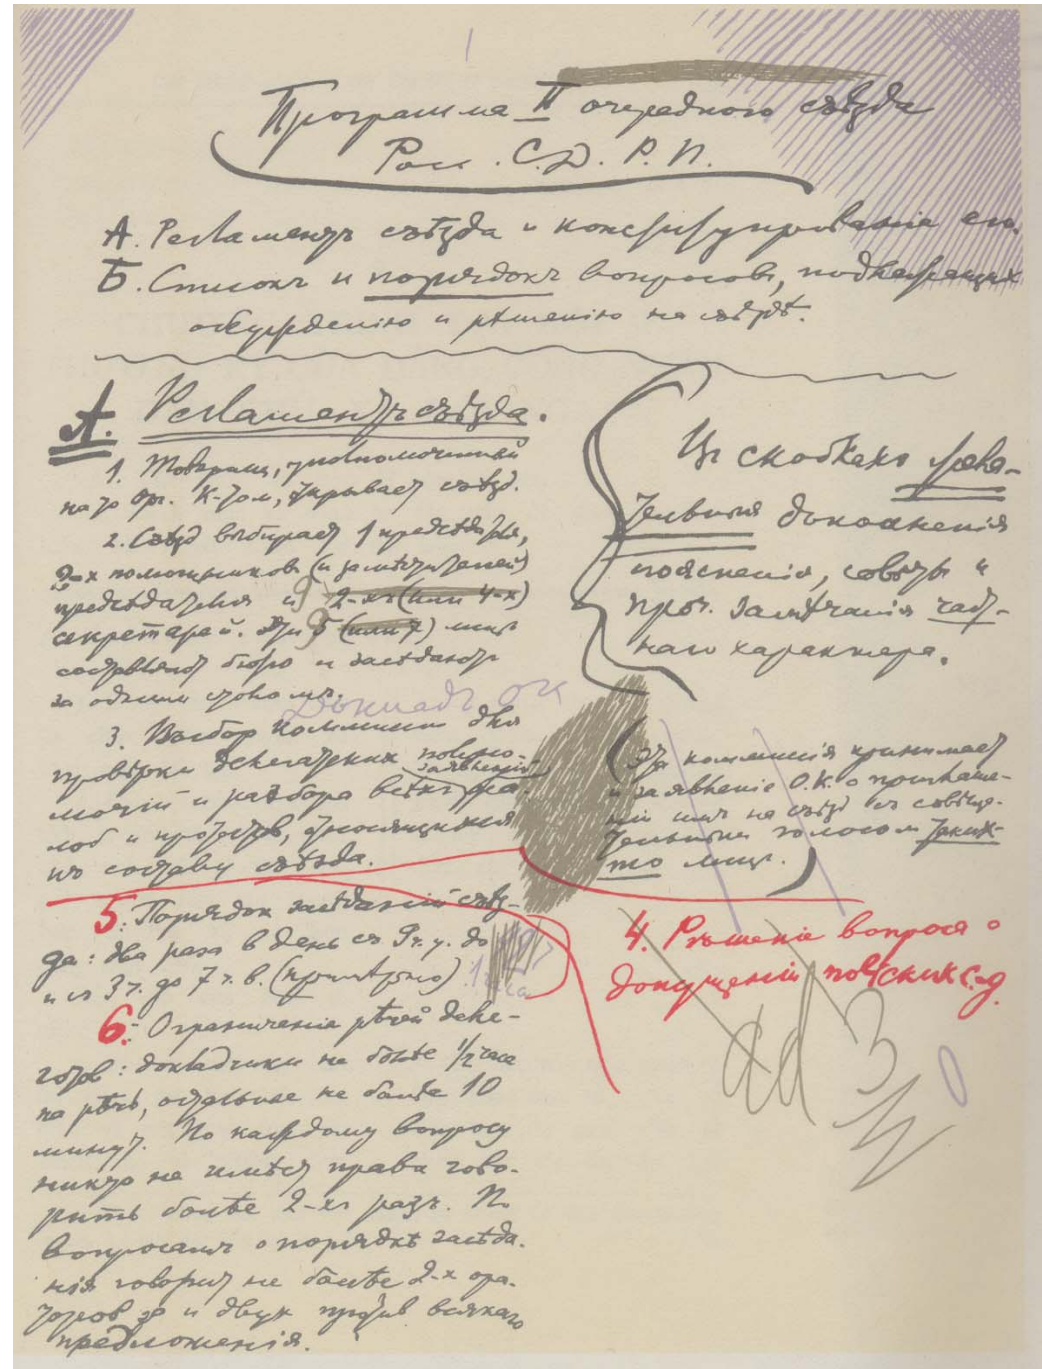 Программа II очередного съѣзда
Росс. С.Д. Р. П.
А. Регламентъ съѣзда и конституированіе его.
Б. Списокъ и порядокъ вопросовъ, подлежащихъ
обсужденію и рѣшенію на съѣздѣ.
А. Регламентъ съѣзда.
1. Товарищ, уполномоченный
на то Орг. К-том, открывает съѣзд.
2. Съѣзд выбирает 1 председателя,
2-х помощников (и заместителей)
председателя и 9 2-хъ (или 4-х)
секретарей. Эти 5 (или 7) лиц
составляют бюро и заседают
за одним столомъ.
Докладъ ОК
3. Выбор комиссии для
провѣрки делегатских полно-
заявленій
мочій и разбора всѣхъ жа-
лоб и протестов, относящихся
къ составу съѣзда.
5. Порядок засѣданій съѣз-
да: два раза в день съ 9 ч. у. до
и съ 3 ч. до 7 ч. в. (примѣрно)
6. Ограниченіе рѣчей деле-
гатов: докладчики не болѣе 1/2 часа
на рѣчь, остальные не болѣе 10
минут. По каждому вопросу
никто не имѣет права гово-
рить болѣе 2-хъ разъ. По
вопросамъ о порядкѣ засѣда-
нія говорит не болѣе 2-х ора-
торов за и двух против всякаго
предложенія.
Въ скобкахъ жела-
тельныя дополненія
поясненія, совѣты и
проч. замѣчанія част-
наго характера.
(Эта комиссія принимает
и заявленіе О.К. о приглаше-
ніи имъ на съѣзд съ совѣща-
тельным голосом таких-
то лицъ.)
4. Рѣшеніе вопроса о
допущеніи польских с.д.
ad 3